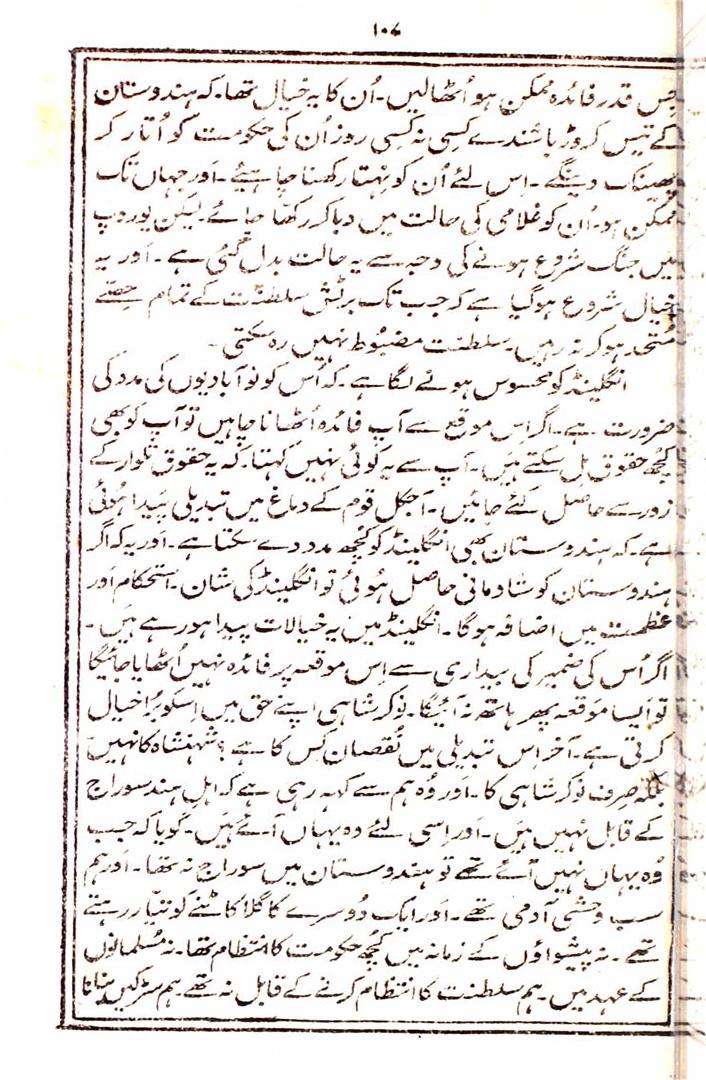 ۱۰۷
جس قدر فائدہ ممکن ہو اُٹھالیں۔ اُن کا یہ خیال تھا۔ کہ ہندوستان
کے تیس کروڑ باشندے کسی نہ کسی روز اُن کی حکومت کو اُتار کر
پھینک دینگے۔ اِس لئے اُن کو نہتا رکھنا چاہیئے۔ اَور جہاں تک
ممکن ہو۔ اُن کو غلامی کی حالت میں دبا کر رکھا جائے۔ لیکن یوروپ
میں جنگ شروع ہونے کی وجہ سے یہ حالت بدل گئی ہے۔ اَور یہ
خیال شروع ہوگیا ہے کہ جب تک برٹش سلطنت کے تمام حصّے
متحد ہو کر نہ رہیں۔ سلطنت مضبُوط نہیں رہ سکتی۔
انگلینڈ کو محسوس ہونے لگا ہے۔ کہ اُس کو نو آبادیوں کی مدد کی
ضرورت ہے۔ اگر اِس موقع سے آپ فائدہ اُٹھانا چاہیں تو آپ کو بھی
کچُھ حقوق مِل سکتے ہَیں۔ آپ سے یہ کوئی نہیں کہتا۔ کہ یہ حقوق تلوار کے
زور سے حاصل کئے جائیں۔ آجکل قوم کے دماغ میں تبدیلی پَیدا ہُوئی
ہے۔ کہ ہندوستان بھی انگلینڈ کو کچُھ مدد دے سکتا ہے۔ اَور یہ کہ اگر
ہندوستان کو شادمانی حاصل ہُوئی تو انگلینڈ کی شان۔ استحکام اَور
عظمت میں اضافہ ہوگا۔ انگلینڈ میں یہ خیالات پیدا ہو رہے ہَیں۔
اگر اُس کی ضمیر کی بیداری سے اِس موقعہ پر فائدہ نہیں اُٹھایا جائیگا
تو اَیسا موَقعہ پھر ہاتھ نہ آئیگا۔ نوکر شاہی اپنے حق میں اِسکو بُرا خیال
کرتی ہے۔ آخر اِس تبدیلی میں نُقصان کِس کا ہے؟ شہنشاہ کا نہیں
بلکہ صِرف نوکر شاہی کا۔ اَور وُہ ہم سے کہہ رہی ہے کہ اہلِ ہند سوراج
کے قابل نہیں ہَیں۔ اَور اِسی لئے وہ یہاں آئے ہَیں۔ گویا کہ جب
وُہ یہاں نہیں آئے تھے تو ہندوستان میں سوراج نہ تھا۔ اَور ہم
سب وحشی آدمی تھے۔ اَور ایک دُوسرے کا گلا کاٹنے کو تیّار رہتے
تھے۔ نہ پیشواؤں کے زمانہ میں کُچھ حکومت کا انتظام تھا۔ نہ مُسلمانوں
کے عہد میں۔ ہم سلطنت کا انتظام کرنے کے قابل نہ تھے۔ ہم سڑکیں بنانا